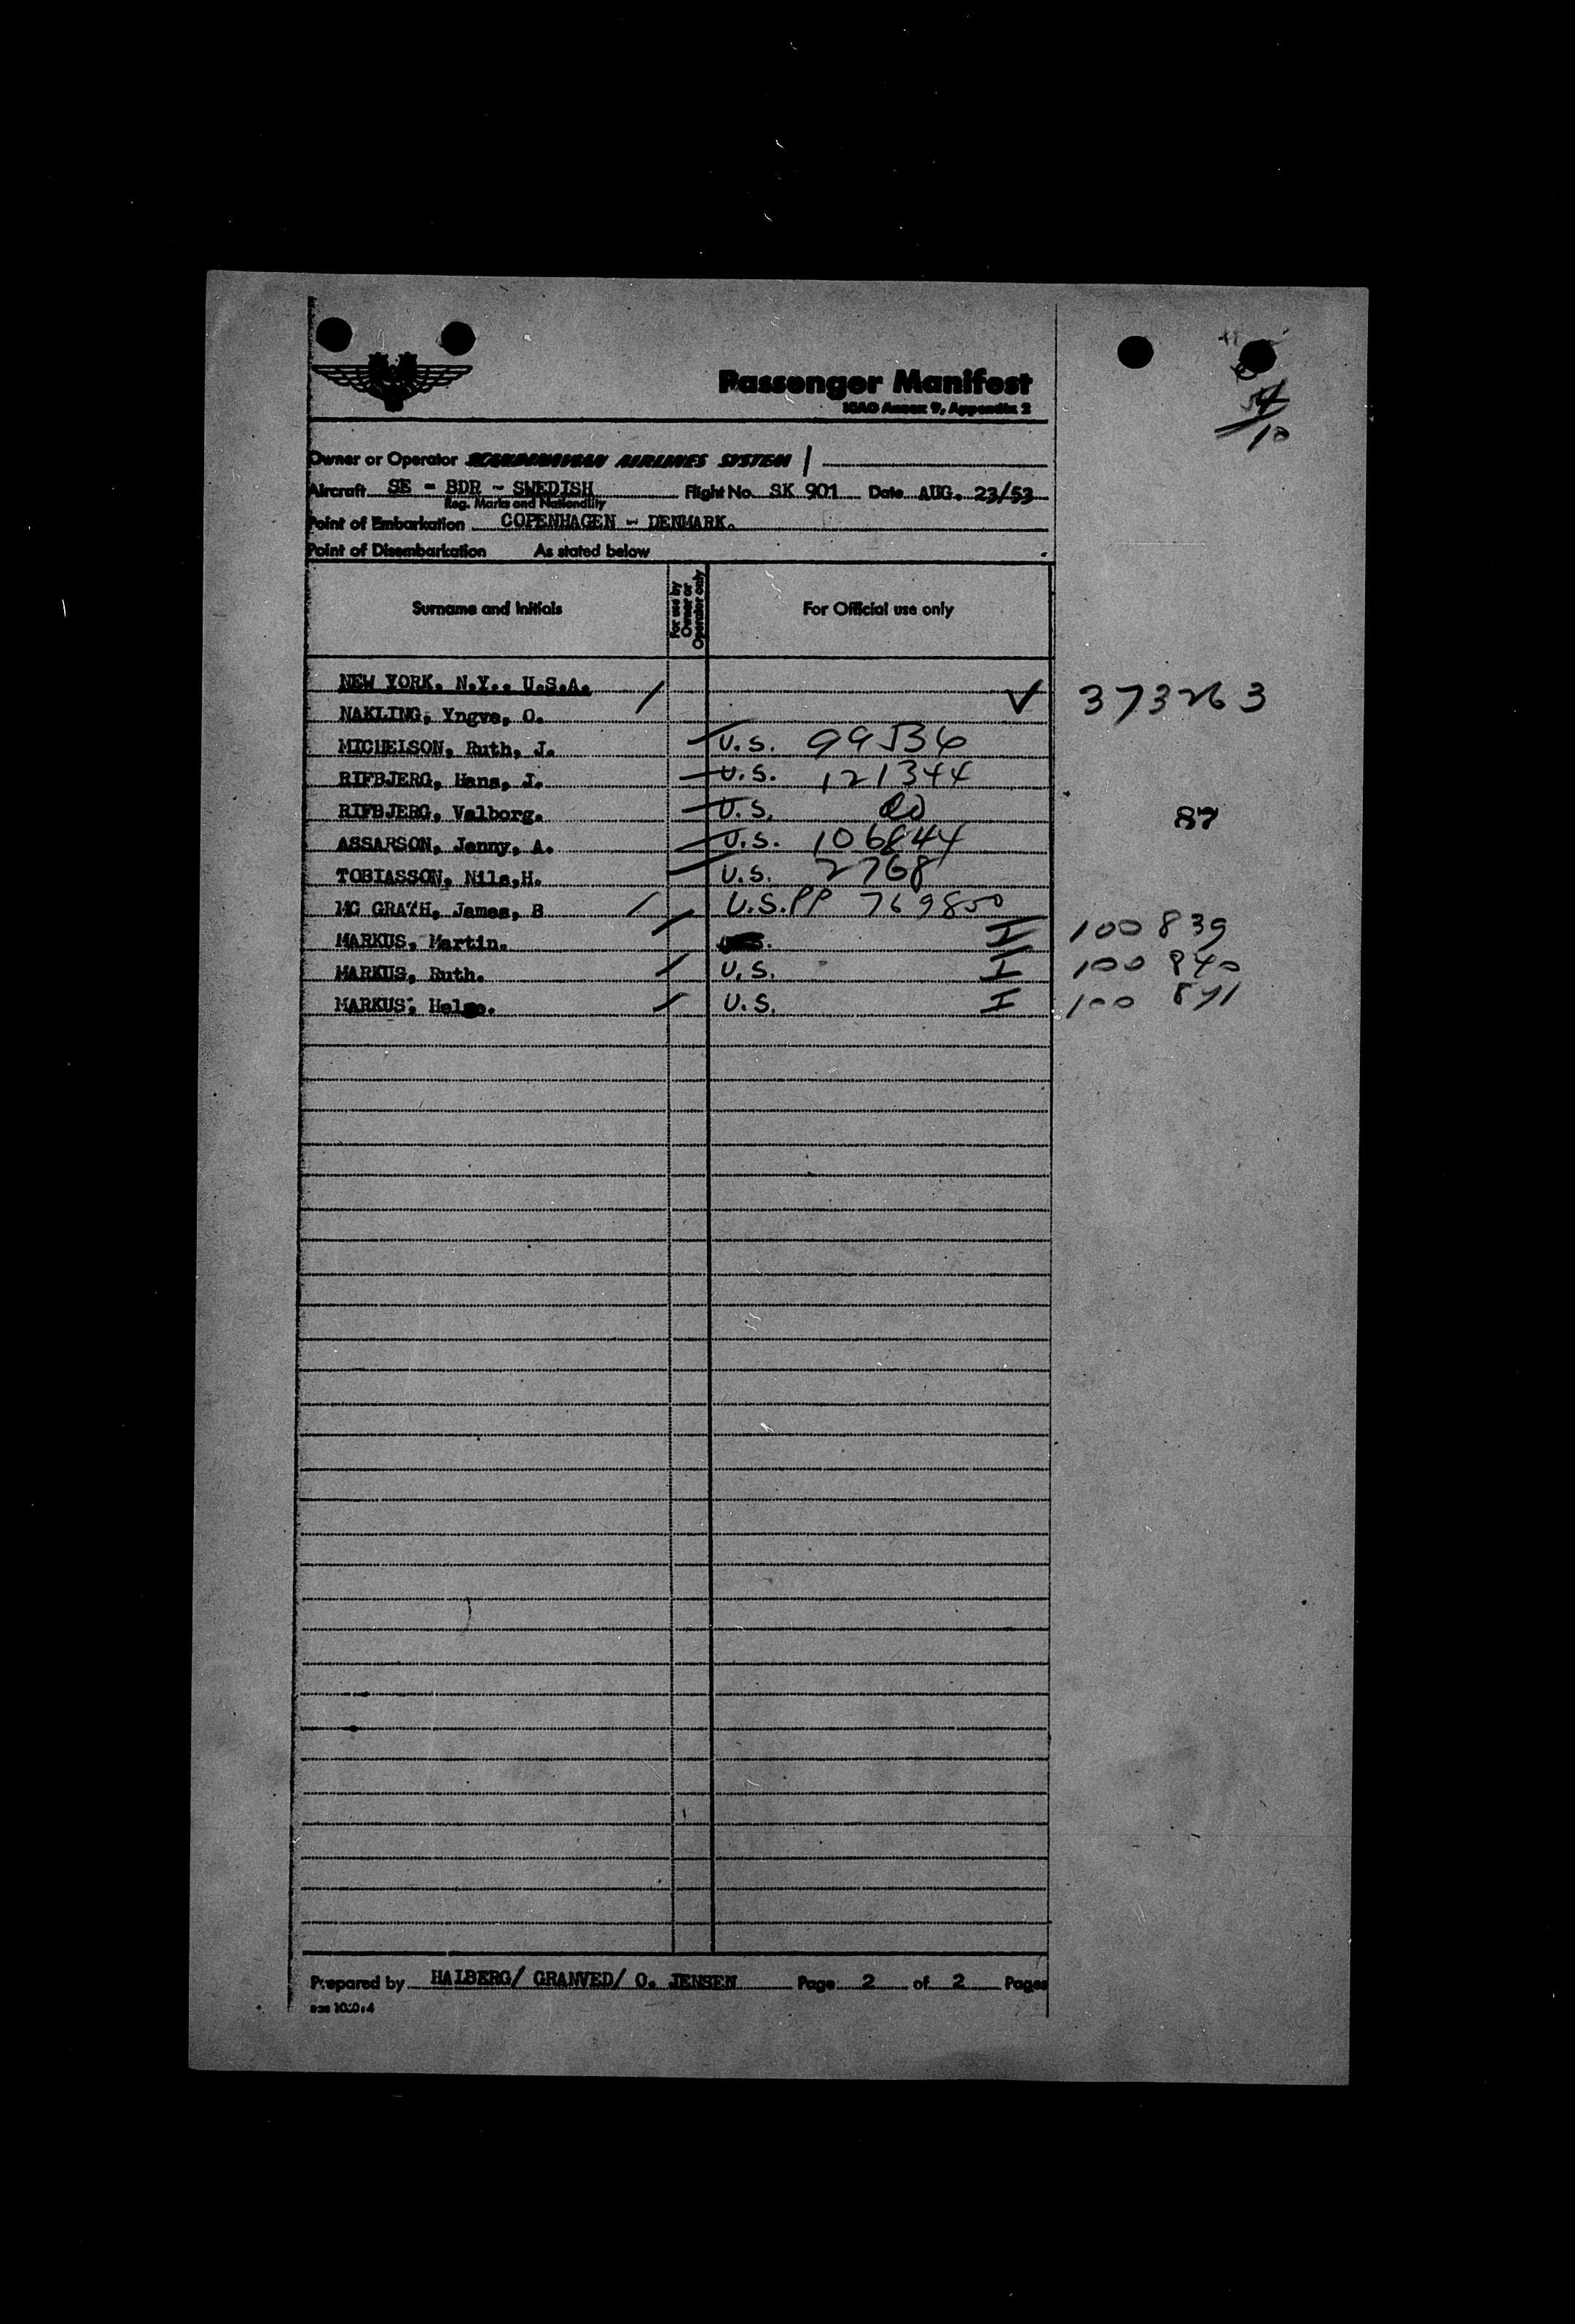 Passenger Manifest
ICAO Annex 9, Appendix 2
54
10
Owner or Operator SCANDINAVIAN AIRLINES SYSTEM
Aircraft SE - BDR - SWEDISH Flight No. SK 901 Date AUG. 23/53
Reg. Marks and Nationality
Point of Embarkation COPENHAGEN - DENMARK.
Point of Disembarkation As stated below
Surname and Initials For use by Owner or Operator only For Official use only
NEW YORK, N.Y., U.S.A.
NAKLING, Yngve, O. 373263
MICHELSON, Ruth, J. U.S. 99536
RIFBJERG, Hans, J. U.S. 121344
RIFBJERG, Valborg. U.S. do 87
ASSARSON, Jenny, A. U.S. 106844
TOBIASSON, Nils,H. U.S. 2768
MC GRATH, James, B U.S.PP 769800
MARKUS, Martin. I 100839
MARKUS, Ruth. U.S. I 100 840
MARKUS, Helge. U.S. I 100 841
Prepared by HALBERG/ GRANVED/ O. JENSEN Page 2 of 2 Pages